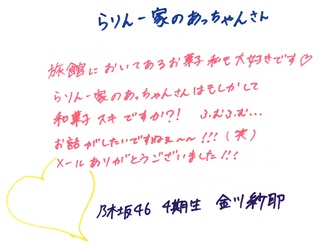 らりんー家のあっちゃんさん
旅館においてあるお菓子 私も大好きです♡
らりんー家のあっちゃんさんはもしかして
和菓子 スキ ですか?! ふむふむ…
お話がしたいですねぇ〜!!!(笑)
メールありがとうございました!!!
乃木坂46 4期生 金川紗耶